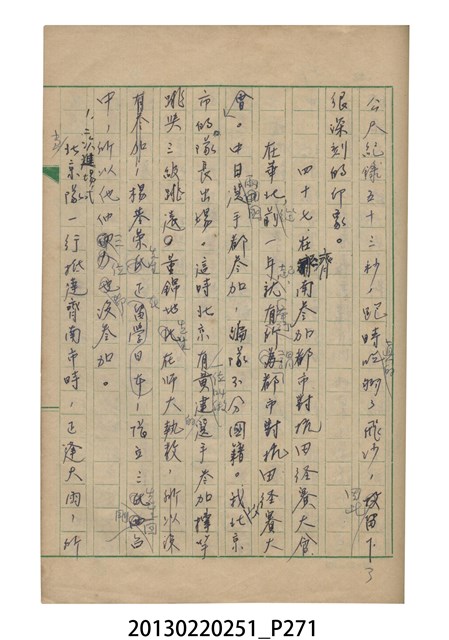 公尺紀錄五十三秒，跑時吃夠了飛沙，故留下了
很深刻的印象。
四十七.在濟南參加都市對抗田徑賽大會
在華北，前一年就有所謂都市對抗田徑賽大
會。中日選手都參加，編隊不分國籍。我以北京
市的隊長出場。這時北京有一位叫黃建選手參加撐竿
跳與三級跳遠。董錦地先生在師大執教，所以沒
有參加，楊養榮氏正留學日本，
中，所以他們三位都沒參加。
1.
北京隊一行抵達濟南市時，正逢大雨，所
20130220251_P271